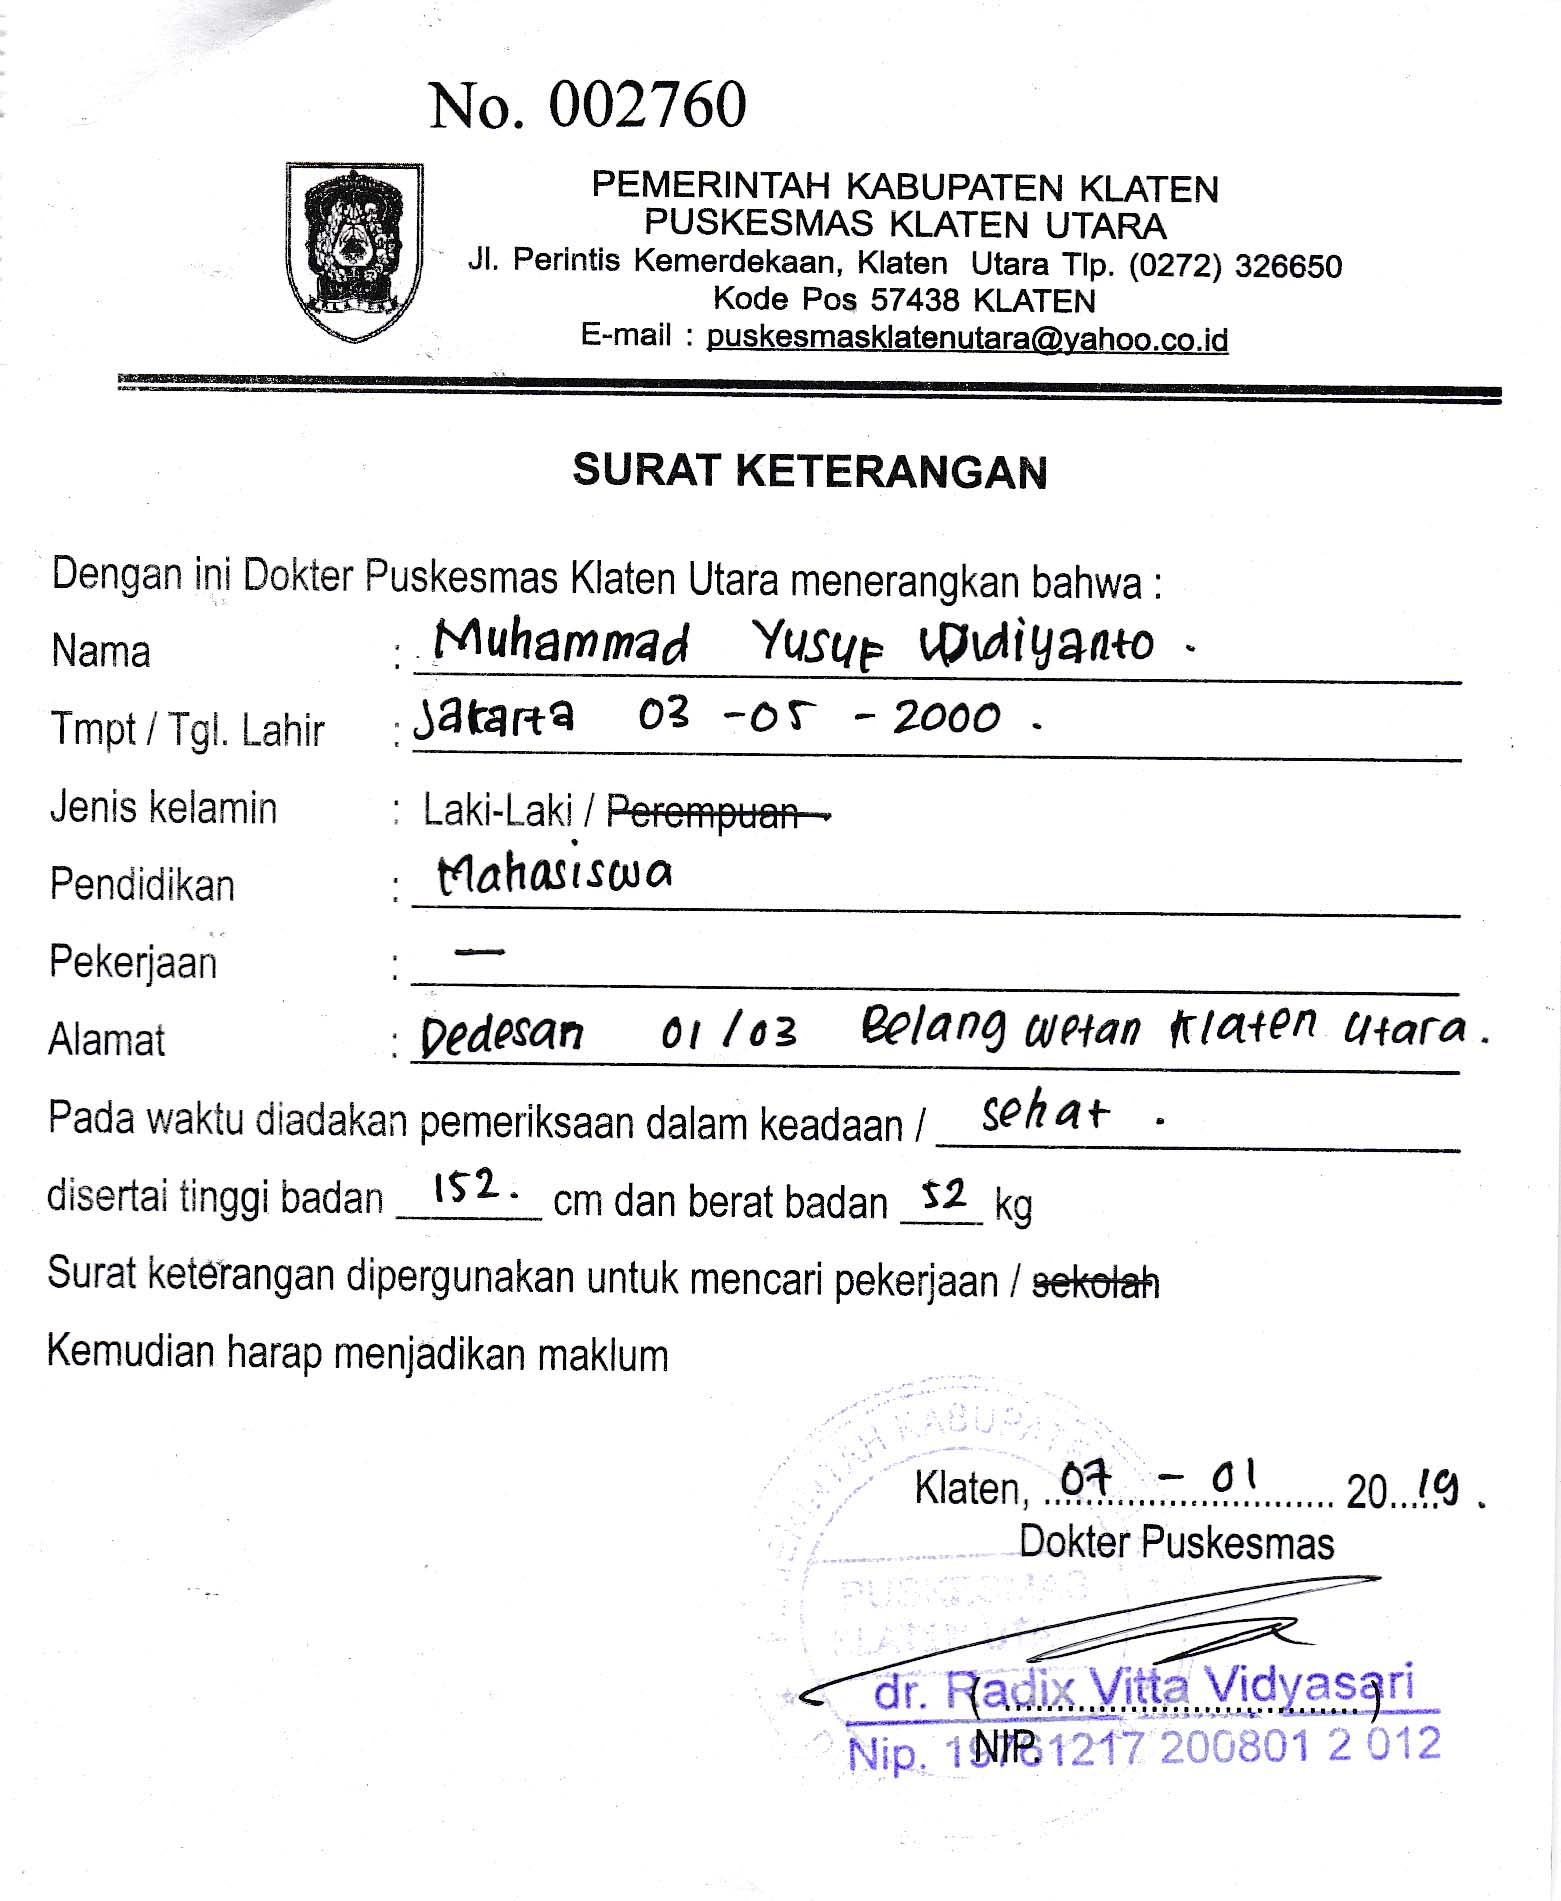 No. 002760
PEMERINTAH KABUPATEN KLATEN
PUSKESMAS KLATEN UTARA
Jl. Perintis Kemerdekaan, Klaten Utara Tlp. (0272) 326650
Kode Pos 57438 KLATEN
E-mail : puskesmasklatenutara@yahoo.co.id
KLATEN
SURAT KETERANGAN
Dengan ini Dokter Puskesmas Klaten Utara menerangkan bahwa :
Nama : Muhammad Yusuf Widiyanto .
Tmpt / Tgl. Lahir : Jakarta 03 -05 - 2000 .
Jenis kelamin : Laki-Laki / Perempuan
Pendidikan : Mahasiswa
Pekerjaan : —
Alamat : Dedesan 01/03 Belang wetan Klaten Utara.
Pada waktu diadakan pemeriksaan dalam keadaan / sehat .
disertai tinggi badan 152. cm dan berat badan 52 kg
Surat keterangan dipergunakan untuk mencari pekerjaan / sekolah
Kemudian harap menjadikan maklum
Klaten, 07 - 01 2019 .
Dokter Puskesmas
PUSKESMAS
KLATEN UTARA
dr. Radix Vitta Vidyasari
(..............................)
NIP.
Nip. 19761217 200801 2 012